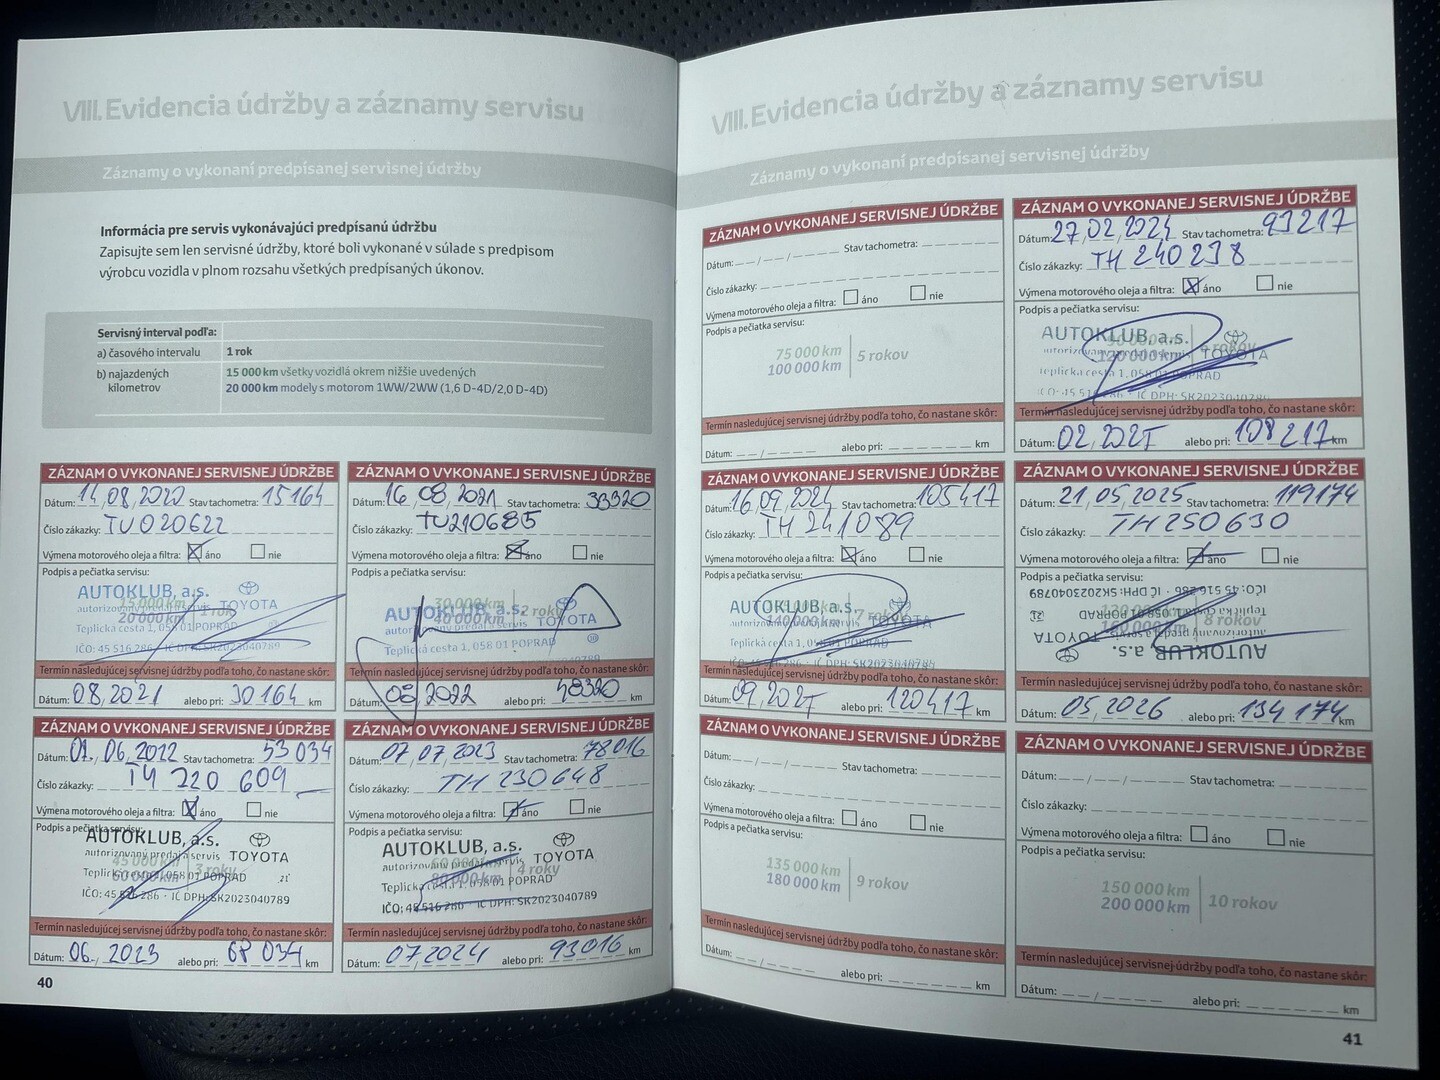 VIII. Evidencia údržby a záznamy servisu
Záznamy o vykonaní predpísanej servisnej údržby
Informácia pre servis vykonávajúci predpísanú údržbu
Zapisujte sem len servisné údržby, ktoré boli vykonané v súlade s predpisom
výrobcu vozidla v plnom rozsahu všetkých predpísaných úkonov.
Servisný interval podľa:
a) časového intervalu 1 rok
b) najazdených kilometrov
15 000 km všetky vozidlá okrem nižšie uvedených
20 000 km modely s motorom 1WW/2WW (1,6 D-4D/2,0 D-4D)
ZÁZNAM O VYKONANEJ SERVISNEJ ÚDRŽBE
Dátum: 14/08/2020 Stav tachometra: 15164
Číslo zákazky: TU020622
Výmena motorového oleja a filtra: áno nie
Podpis a pečiatka servisu:
AUTOKLUB, a.s.
15 000 km 1 rok
autorizovaný predaj a servis TOYOTA
20 000 km
Teplická cesta 1, 058 01 POPRAD
IČO: 45 516 286 · IČ DPH: SK2023040789
Termín nasledujúcej servisnej údržby podľa toho, čo nastane skôr:
Dátum: 08/2021 alebo pri: 30164 km
ZÁZNAM O VYKONANEJ SERVISNEJ ÚDRŽBE
Dátum: 16/08/2021 Stav tachometra: 33320
Číslo zákazky: TU210685
Výmena motorového oleja a filtra: áno nie
Podpis a pečiatka servisu:
30 000 km 2 roky
AUTOKLUB, a.s.
40 000 km
autorizovaný predaj a servis TOYOTA
Teplická cesta 1, 058 01 POPRAD
IČO: 45 516 286 · IČ DPH: SK2023040789
Termín nasledujúcej servisnej údržby podľa toho, čo nastane skôr:
Dátum: 08/2022 alebo pri: 48320 km
ZÁZNAM O VYKONANEJ SERVISNEJ ÚDRŽBE
Dátum: 06/2022 Stav tachometra: 53034
Číslo zákazky: 220 609
Výmena motorového oleja a filtra: áno nie
Podpis a pečiatka servisu:
AUTOKLUB, a.s.
autorizovaný predaj a servis TOYOTA
45 000 km 3 roky
Teplická cesta 1, 058 01 POPRAD
60 000 km
IČO: 45 516 286 · IČ DPH: SK2023040789
Termín nasledujúcej servisnej údržby podľa toho, čo nastane skôr:
Dátum: 06/2023 alebo pri: 68 034 km
ZÁZNAM O VYKONANEJ SERVISNEJ ÚDRŽBE
Dátum: 07/07/2023 Stav tachometra: 78016
Číslo zákazky: TH 230648
Výmena motorového oleja a filtra: áno nie
Podpis a pečiatka servisu:
AUTOKLUB, a.s.
autorizovaný predaj a servis TOYOTA
60 000 km 4 roky
Teplická cesta 1, 058 01 POPRAD
80 000 km
IČO: 45 516 286 · IČ DPH: SK2023040789
Termín nasledujúcej servisnej údržby podľa toho, čo nastane skôr:
Dátum: 07/2024 alebo pri: 93016 km
40
VIII. Evidencia údržby a záznamy servisu
Záznamy o vykonaní predpísanej servisnej údržby
ZÁZNAM O VYKONANEJ SERVISNEJ ÚDRŽBE
Dátum: / / Stav tachometra:
Číslo zákazky:
Výmena motorového oleja a filtra: áno nie
Podpis a pečiatka servisu:
75 000 km 5 rokov
100 000 km
Termín nasledujúcej servisnej údržby podľa toho, čo nastane skôr:
Dátum: / alebo pri: km
ZÁZNAM O VYKONANEJ SERVISNEJ ÚDRŽBE
Dátum: 27/02/2024 Stav tachometra: 93217
Číslo zákazky: TH 240238
Výmena motorového oleja a filtra: áno nie
Podpis a pečiatka servisu:
AUTOKLUB, a.s.
90 000 km 6 rokov
120 000 km TOYOTA
Teplická cesta 1, 058 01 POPRAD
IČO: 45 516 286 · IČ DPH: SK2023040789
Termín nasledujúcej servisnej údržby podľa toho, čo nastane skôr:
Dátum: 02/2025 alebo pri: 108217 km
ZÁZNAM O VYKONANEJ SERVISNEJ ÚDRŽBE
Dátum: 16/09/2024 Stav tachometra: 105417
Číslo zákazky: TH 241089
Výmena motorového oleja a filtra: áno nie
Podpis a pečiatka servisu:
AUTOKLUB, a.s.
7 rokov
140 000 km TOYOTA
Teplická cesta 1, 058 01 POPRAD
IČO: 45 516 286 · IČ DPH: SK2023040789
Termín nasledujúcej servisnej údržby podľa toho, čo nastane skôr:
Dátum: 09/2025 alebo pri: 120417 km
ZÁZNAM O VYKONANEJ SERVISNEJ ÚDRŽBE
Dátum: 21/05/2025 Stav tachometra: 119174
Číslo zákazky: TH250630
Výmena motorového oleja a filtra: áno nie
Podpis a pečiatka servisu:
IČO: 45 516 286 · IČ DPH: SK2023040789
Teplická cesta 1, 058 01 POPRAD
160 000 km 8 rokov
autorizovaný predaj a servis TOYOTA
AUTOKLUB, a.s.
Termín nasledujúcej servisnej údržby podľa toho, čo nastane skôr:
Dátum: 05/2026 alebo pri: 134 174 km
ZÁZNAM O VYKONANEJ SERVISNEJ ÚDRŽBE
Dátum: / / Stav tachometra:
Číslo zákazky:
Výmena motorového oleja a filtra: áno nie
Podpis a pečiatka servisu:
135 000 km 9 rokov
180 000 km
Termín nasledujúcej servisnej údržby podľa toho, čo nastane skôr:
Dátum: / alebo pri: km
ZÁZNAM O VYKONANEJ SERVISNEJ ÚDRŽBE
Dátum: / / Stav tachometra:
Číslo zákazky:
Výmena motorového oleja a filtra: áno nie
Podpis a pečiatka servisu:
150 000 km 10 rokov
200 000 km
Termín nasledujúcej servisnej údržby podľa toho, čo nastane skôr:
Dátum: / alebo pri: km
41